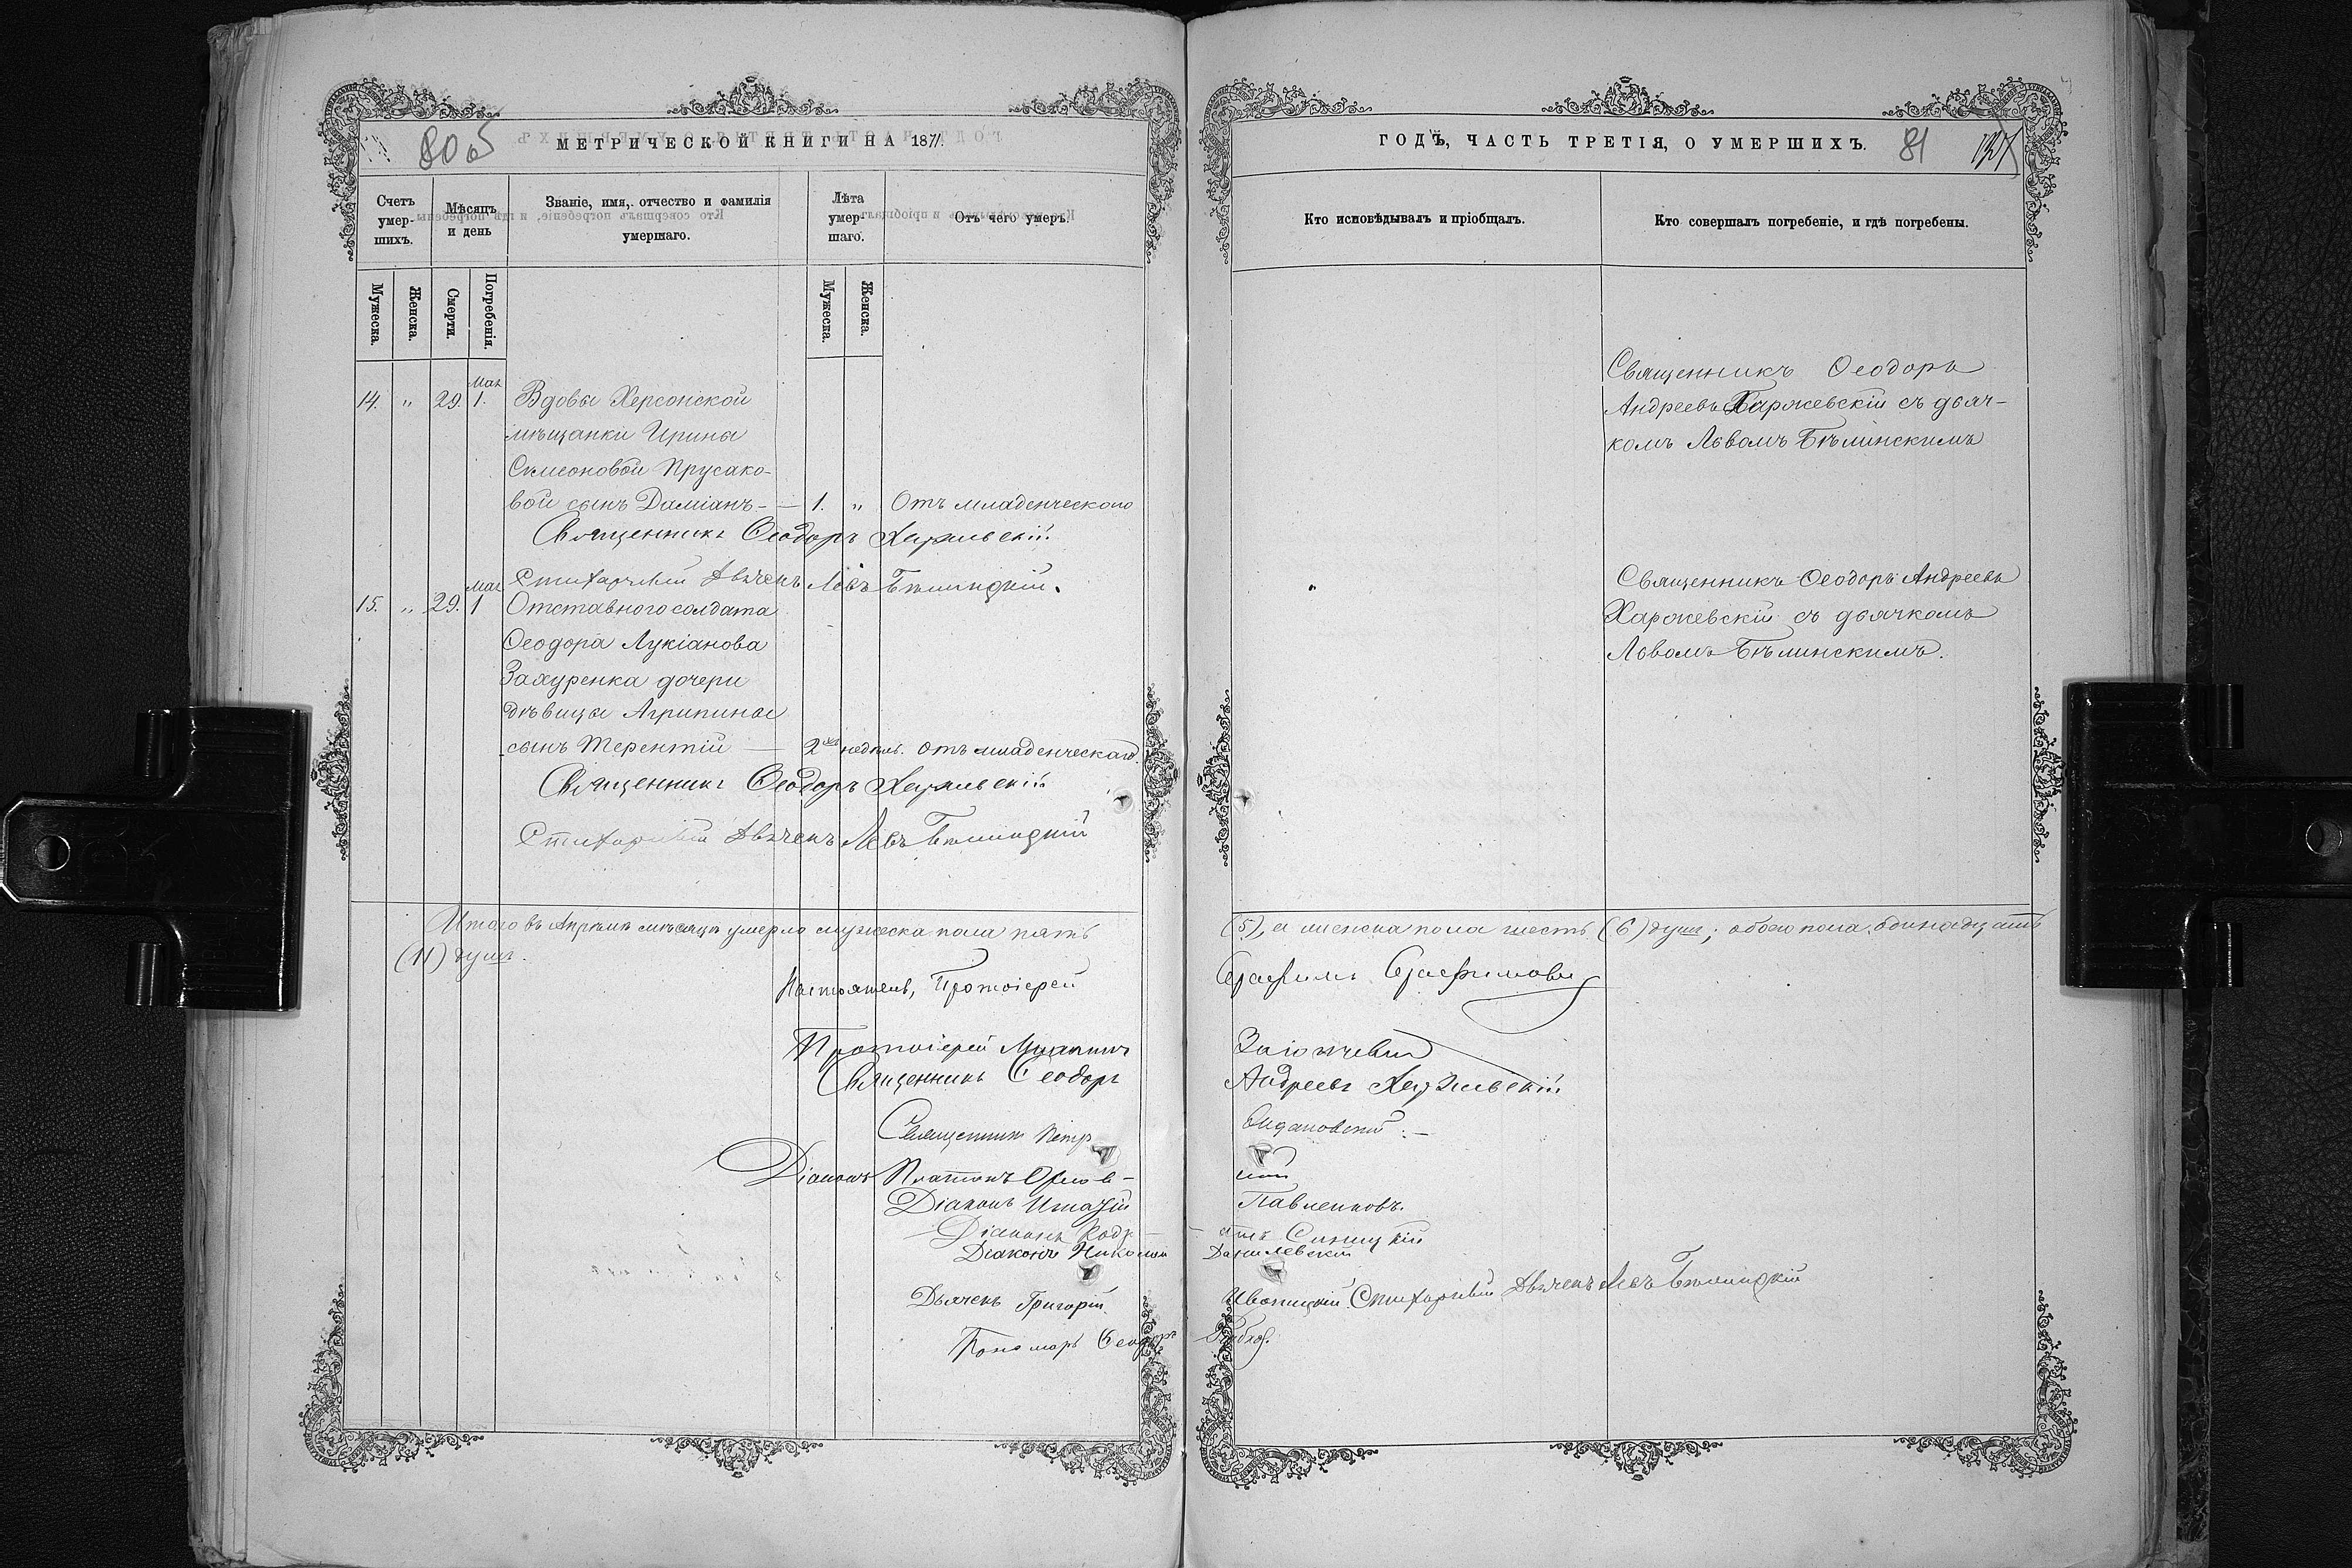 80 об
МЕТРИЧЕСКОЙ КНИГИ НА 1871.
Счетъ умершихъ.
Мѣсяцъ и день
Званіе, имя, отчество и фамилія умершаго.
Лѣта умершаго.
Отъ чего умеръ.
Мужеска.
Женска.
Смерти.
Погребенія.
Мужеска.
Женска.
Мая
14. " 29. 1. Вдовы Херсонской
мѣщанки Ирины
Симеоновой Прусако-
вой сынъ Даміанъ - — 1. " Отъ младенческаго
Священникъ Ѳеодоръ Харжевскій
Стихарный Дьячекъ Левъ Бѣлинскій.
Мая
15. " 29. 1 Отставного солдата
Ѳеодора Лукіанова
Захуренка дочери
дѣвицы Агрипины
сынъ Терентій — 2хъ недѣль. отъ младенческаго.
Священникъ Ѳеодоръ Харжевскій
Стихарный Дьячекъ Левъ Бѣлинскій
Итого въ Апрѣлѣ мѣсяцѣ умерло мужеска пола пять
(11) душъ.
Настоятель, Протоіерей
Протоіерей
Священникъ Ѳеодоръ
Священникъ Петръ
Діаконъ Платонъ
Діаконъ
Діаконъ Кодр-
Діаконъ Николай
Дьячекъ Григорій
Пономарь Ѳеодоръ
ГОДЪ, ЧАСТЬ ТРЕТІЯ, О УМЕРШИХЪ.
81
Кто исповѣдывалъ и пріобщалъ.
Кто совершалъ погребеніе, и гдѣ погребены.
Священникъ Ѳеодоръ
Андреевъ Харжевскій съ дьяч-
комъ Львомъ Бѣлинскимъ
Священникъ Ѳеодоръ Андреевъ
Харжевскій съ дьячкомъ
Львомъ Бѣлинскимъ.
(5), а женска пола шесть (6) душъ; обоего пола одинадцать
Серафимъ Серафимовъ
Андреевъ Харжевскій
Павленковъ.
атъ Синицкій
Данилевскій
Стихарный Дьячекъ Левъ Бѣлинскій